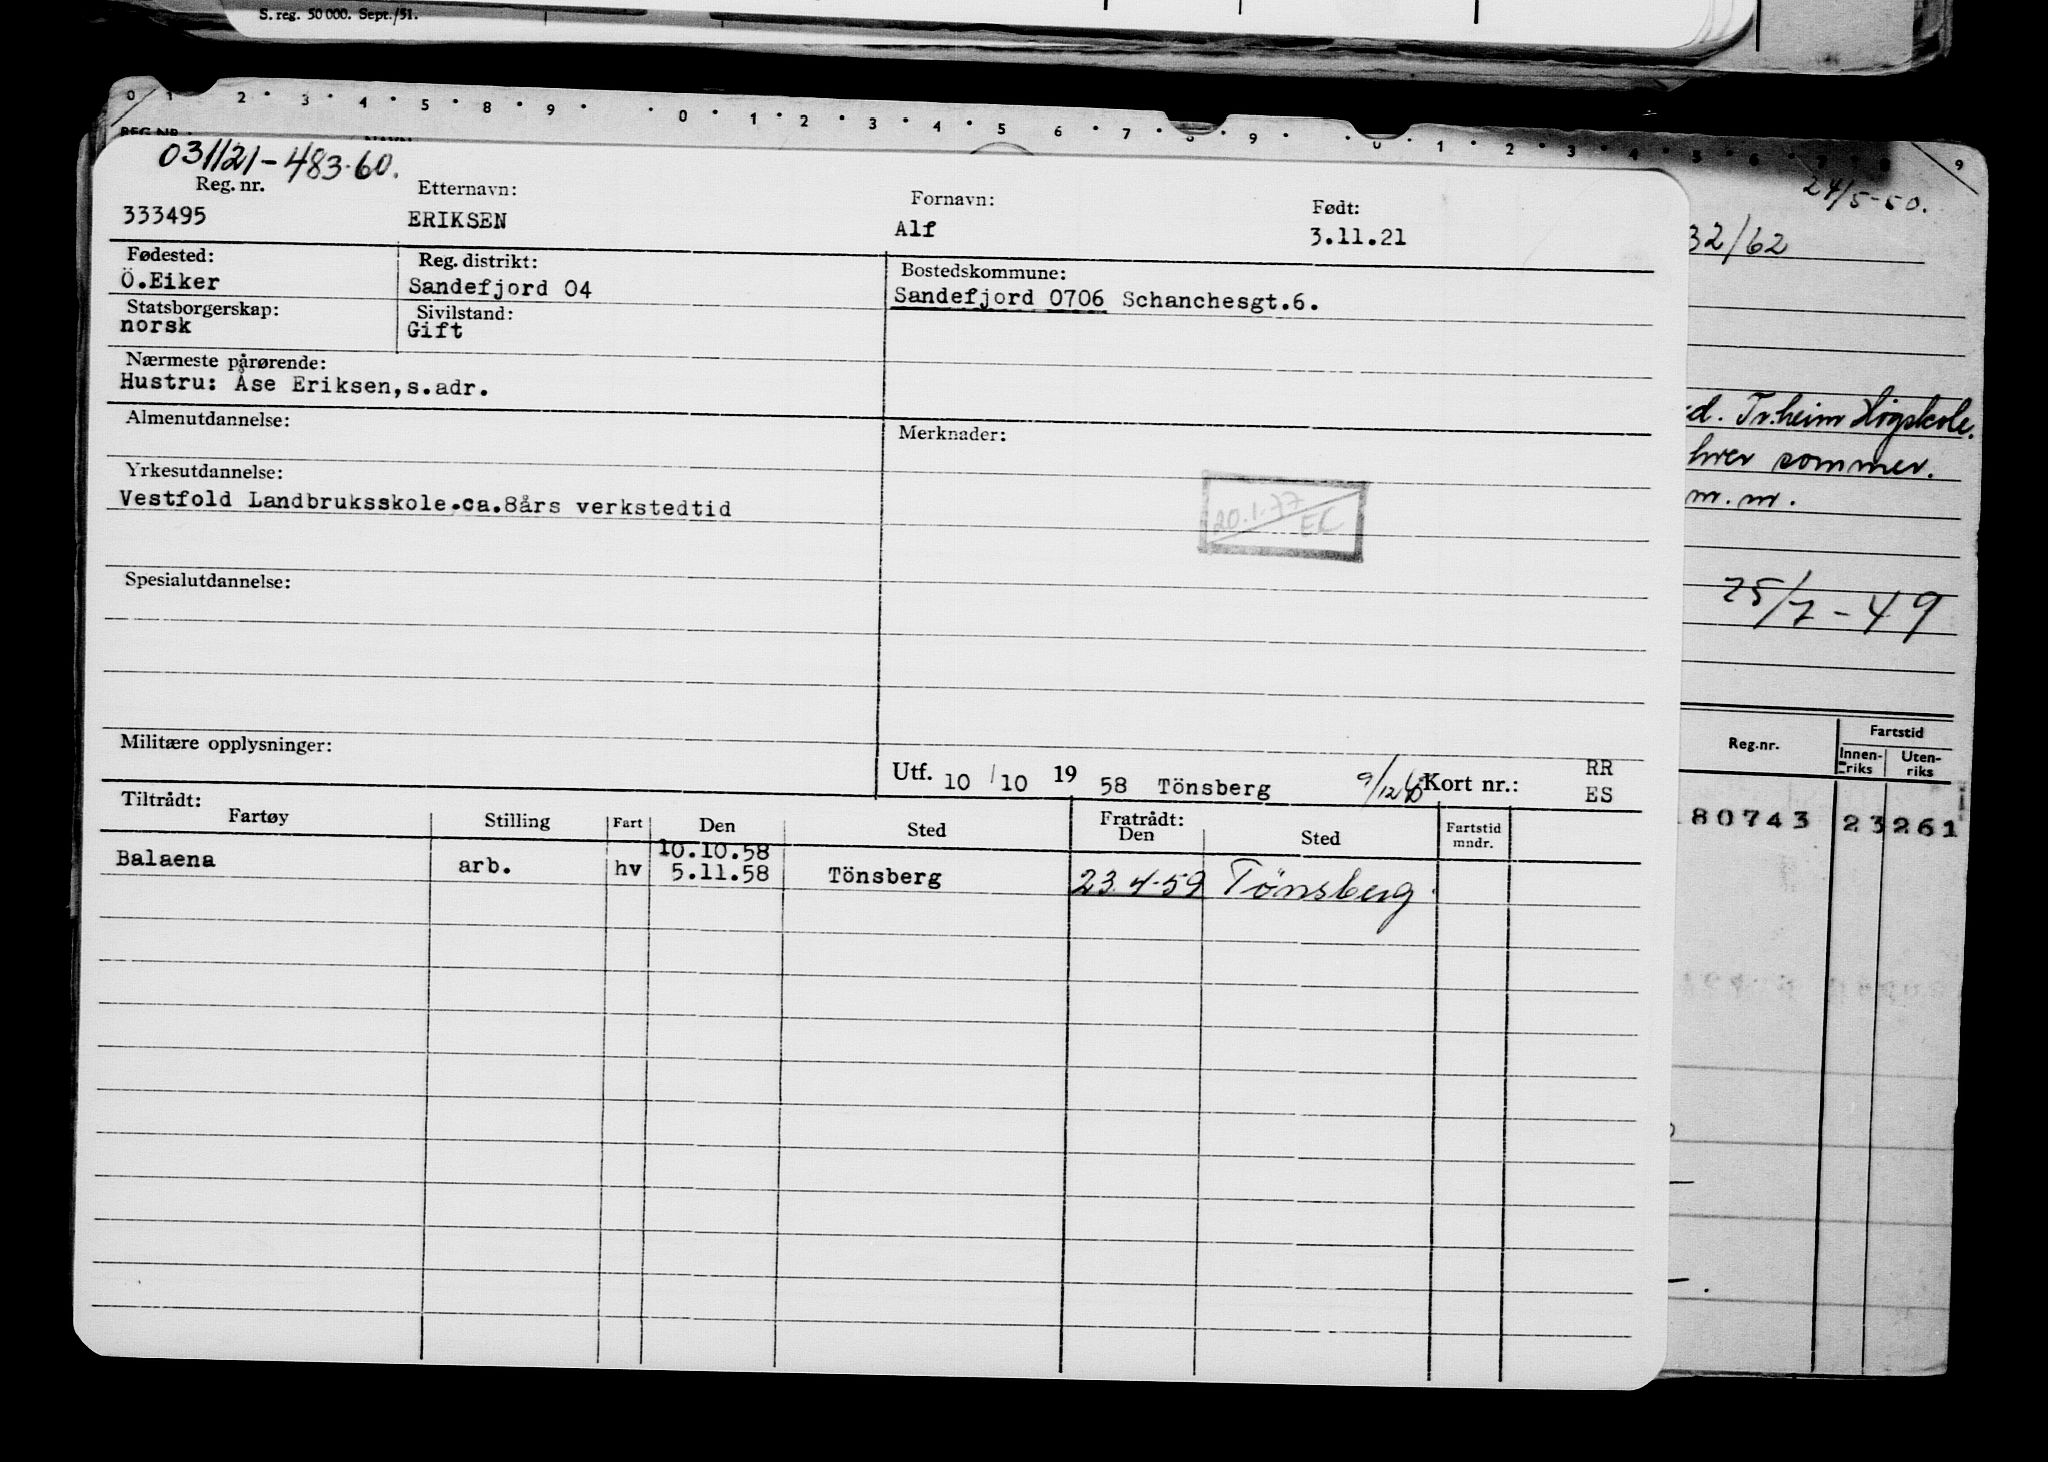 S. reg. 50 000. Sept./51.
0 1 2 3 4 5 8 9 0 1 2 3 4 5 6 7 8 9 0 1 2 3 4 5 6 7 8 9
REG.NR. NAVN
031121-483.60.
24/5-50.
Reg. nr. Etternavn: Fornavn: Født:
333495 ERIKSEN Alf 3.11.21
32/62
Fødested: Reg. distrikt: Bostedskommune:
Ö.Eiker Sandefjord 04 Sandefjord 0706 Schanchesgt.6.
Statsborgerskap: Sivilstand:
norsk Gift
Nærmeste pårørende:
Hustru: Åse Eriksen,s.adr.
Tr.heim Högskole.
Almenutdannelse: Merknader:
hver sommer.
Yrkesutdannelse:
Vestfold Landbruksskole.ca.8års verkstedtid
m.m.
20.1.77
EK
Spesialutdannelse:
25/7-49
Militære opplysninger:
Utf. 10 / 10 19 58 Tönsberg 9/12 Kort nr.: RR
ES
Reg.nr. Fartstid
Innen-riks Uten-riks
Tiltrådt: Fratrådt:
Fartøy Stilling Fart Den Sted Den Sted Fartstid mndr.
80743 23 261
10.10.58
Balaena arb. hv 5.11.58 Tönsberg 23.4.59 Tönsberg